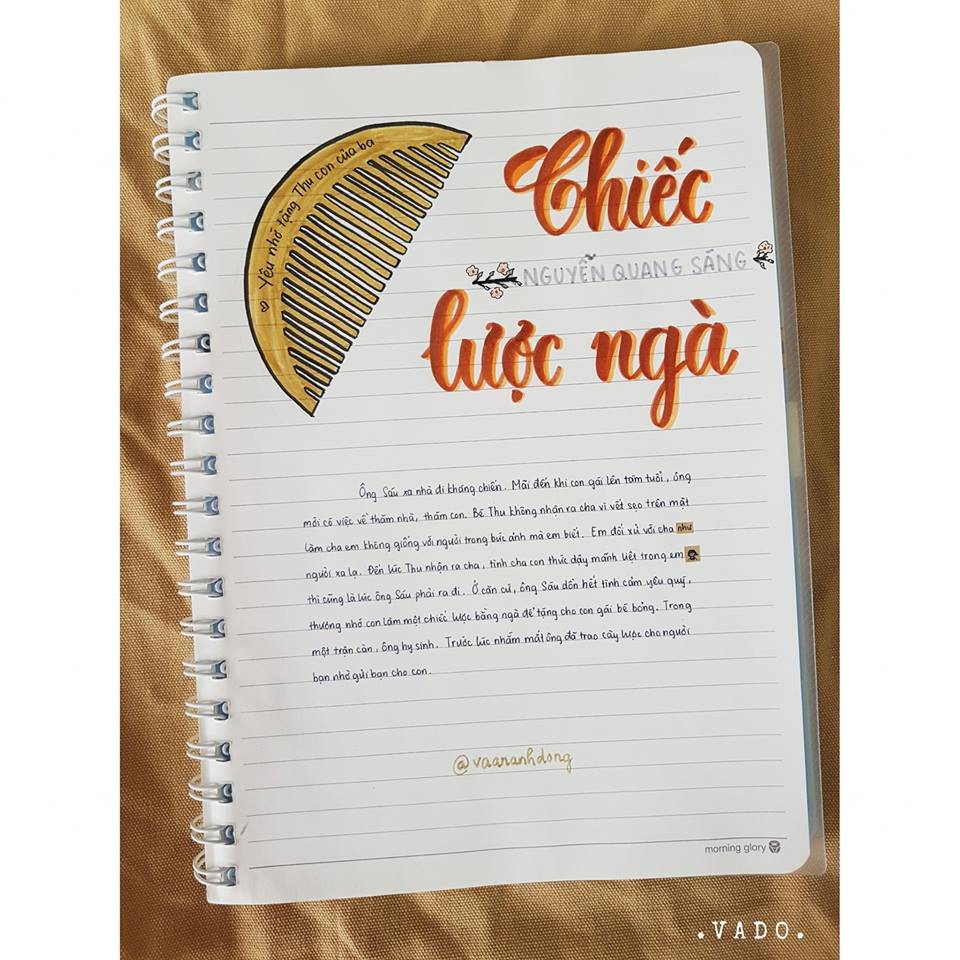 Yêu nhớ tặng Thu con của ba
Chiếc
NGUYỄN QUANG SÁNG
lược ngà
Ông Sáu xa nhà đi kháng chiến. Mãi đến khi con gái lên tám tuổi, ông
mới có việc về thăm nhà, thăm con. Bé Thu không nhận ra cha vì vết sẹo trên mặt
làm cha em không giống với người trong bức ảnh mà em biết. Em đối xử với cha như
người xa lạ. Đến lúc Thu nhận ra cha, tình cha con thức dậy mãnh liệt trong em
thì cũng là lúc ông Sáu phải ra đi. Ở căn cứ, ông Sáu dồn hết tình cảm yêu quý,
thương nhớ con làm một chiếc lược bằng ngà để tặng cho con gái bé bỏng. Trong
một trận càn, ông hy sinh. Trước lúc nhắm mắt ông đã trao cây lược cho người
bạn nhờ gửi bạn cho con.
@vaaranhdong
morning glory
.VADO.